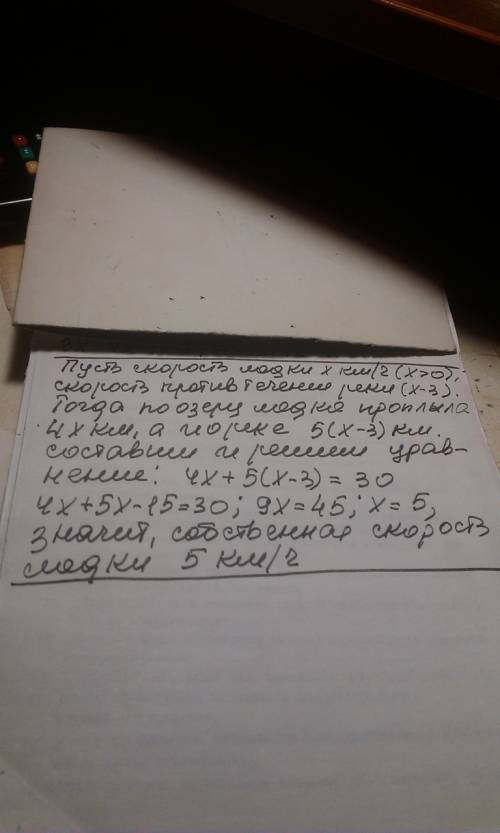 Пусть скорость лодки x км/ч (x>0),
скорость против течения реки (x-3).
Тогда по озеру лодка проплыла
4x км, а по реке 5(x-3) км.
составим и решим урав-
нение: 4x + 5(x-3) = 30
4x+5x-15=30; 9x=45; x=5,
значит, собственная скорость
лодки 5 км/ч